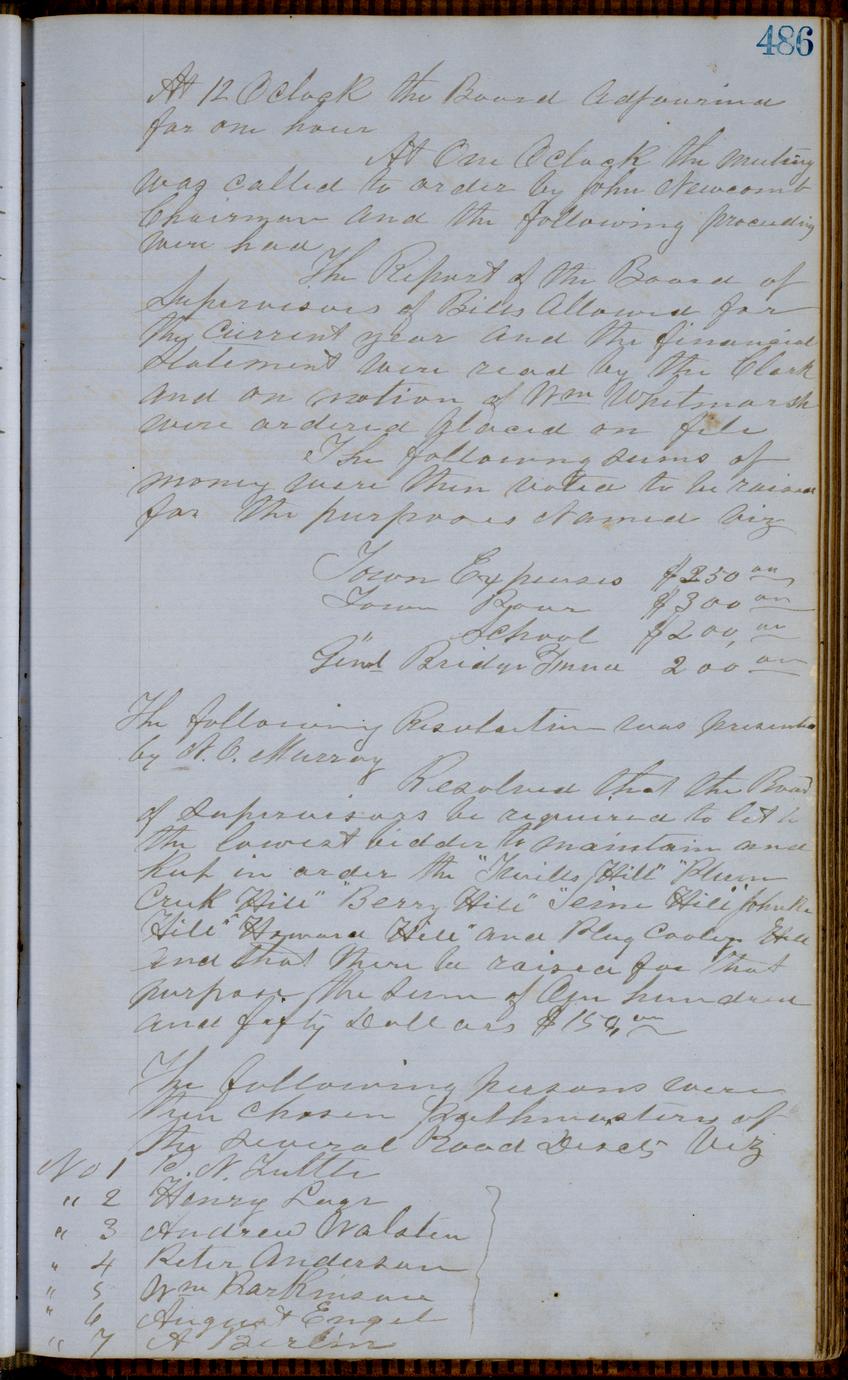 486
At 12 Oclock the Board adjourned
for one hour
At One Oclock the meeting
was called to order by John Newcomb
Chairman and the following proceeding
were had
The Report of the Board of
Supervisors of Bills Allowed for
the Current year and the financial
Statement were read by the Clerk
and on motion of Wm Whitmarsh
were ordered placed on file
The following sums of
money were then voted to be raised
for the purposes Named viz
Town Expenses $250 00
Town Poor $300 00
" School $200, 00
Genl Bridge Fund 200 00
The following Resolution was presented
by N. C. Murray
Resolved that the Board
of Supervisors be required to let to
the lowest bidder to maintain and
Keep in order the " Hill" "Plum
Creek Hill" "Berry Hill" Hill" John
Hill" "Howard Hill" and Plug Cooley Hill
and that there be raised for that
purpose the sum of One hundred
and fifty Dollars $150, 00
The following persons were
then chosen Pathmasters of
the several Road Disct5 Viz
No 1 C. N. Tuttle
" 2 Henry
" 3 Andrew Walsten
" 4 Peter Anderson
" 5 Wm Parkinson
" 6 August Engel
" 7 A Berlin